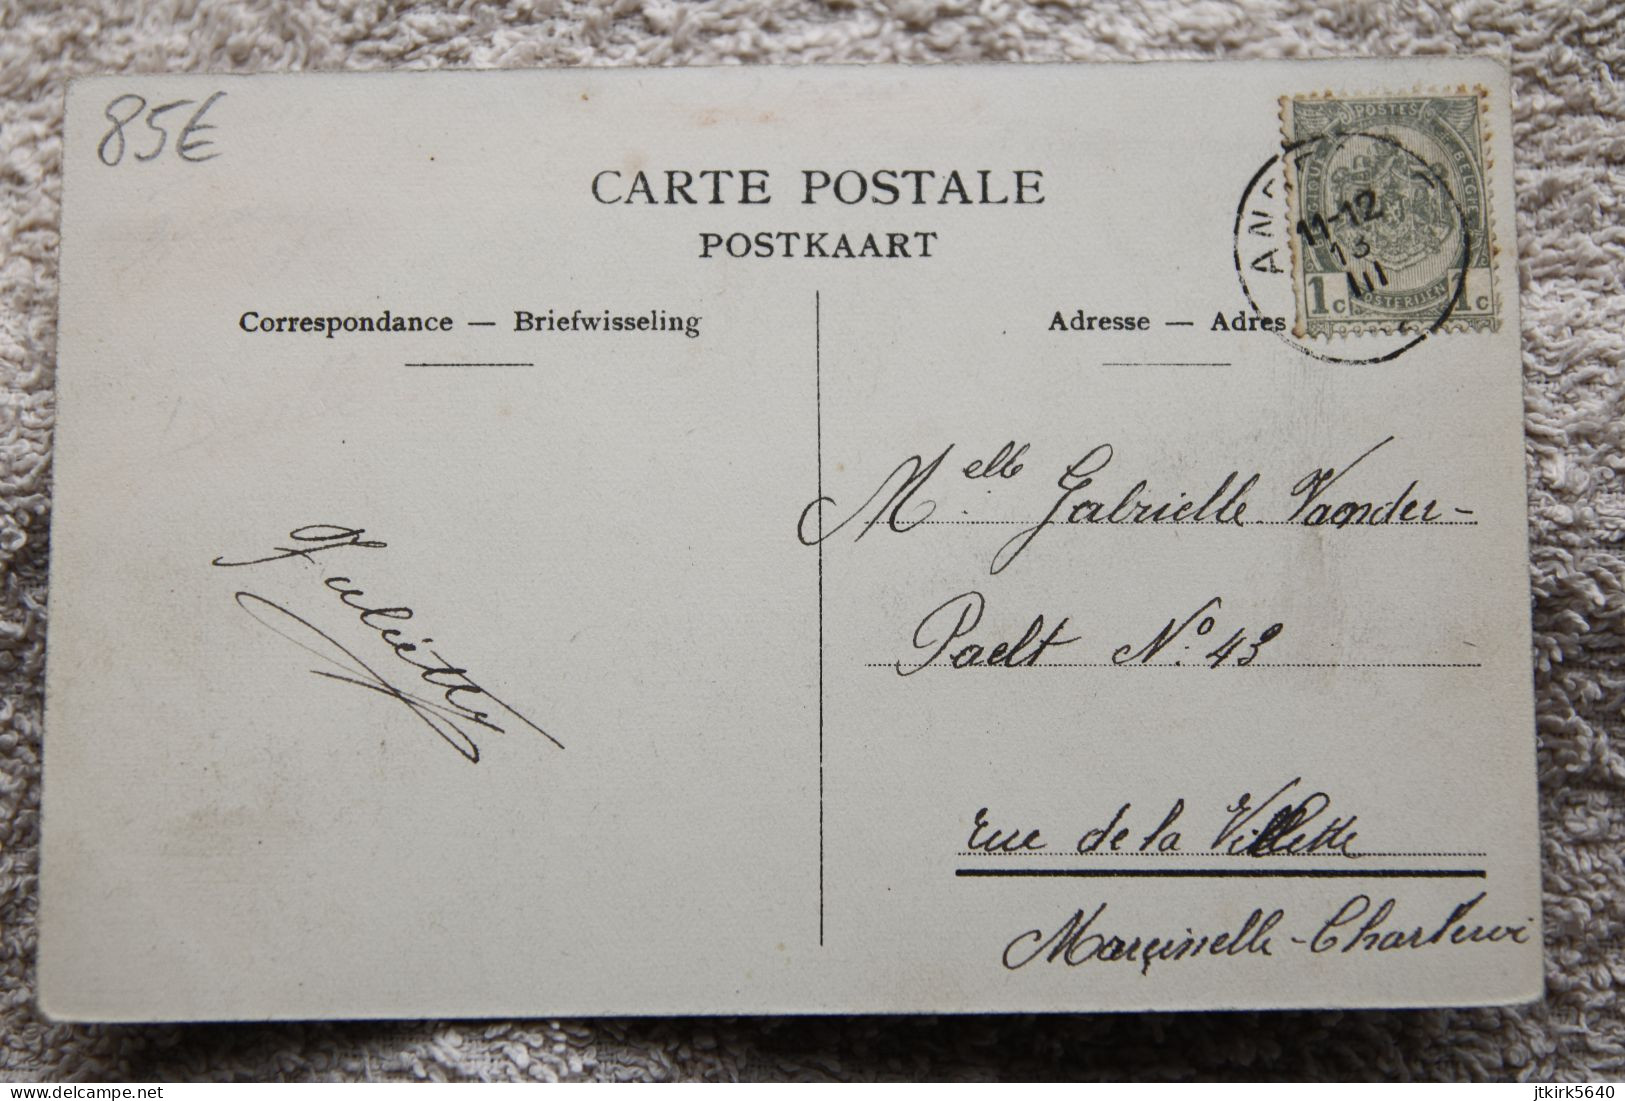 85€
CARTE POSTALE
POSTKAART
Correspondance — Briefwisseling
Adresse — Adres
POSTES
BELGIQUE
1c
POSTERIJEN
1c
11-12
13
III
Juliette
Melle Gabrielle Vander-
Paelt No. 43
rue de la Villette
Marcinelle - Charleroi
Delcampe.net
jtkirk5640